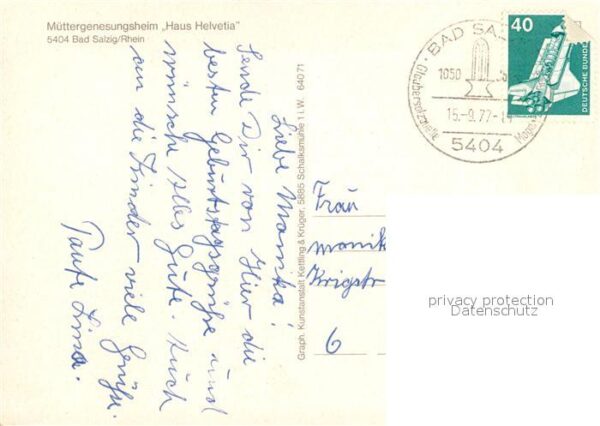 Müttergenesungsheim „Haus Helvetia"
5404 Bad Salzig/Rhein
Liebe Monika!
Sende Dir von Hier die
besten Geburtstagsgrüße und
wünsche Alles Gute. Auch
an die Kinder viele Grüße.
Tante Lina.
Graph. Kunstanstalt Kettling & Krüger, 5885 Schalksmühle 1 i.W. 64071
BAD SAL
1050
15.-9.77-
5404
40
DEUTSCHE BUNDE
Frau
Monik
Krigstr
6
privacy protection
Datenschutz